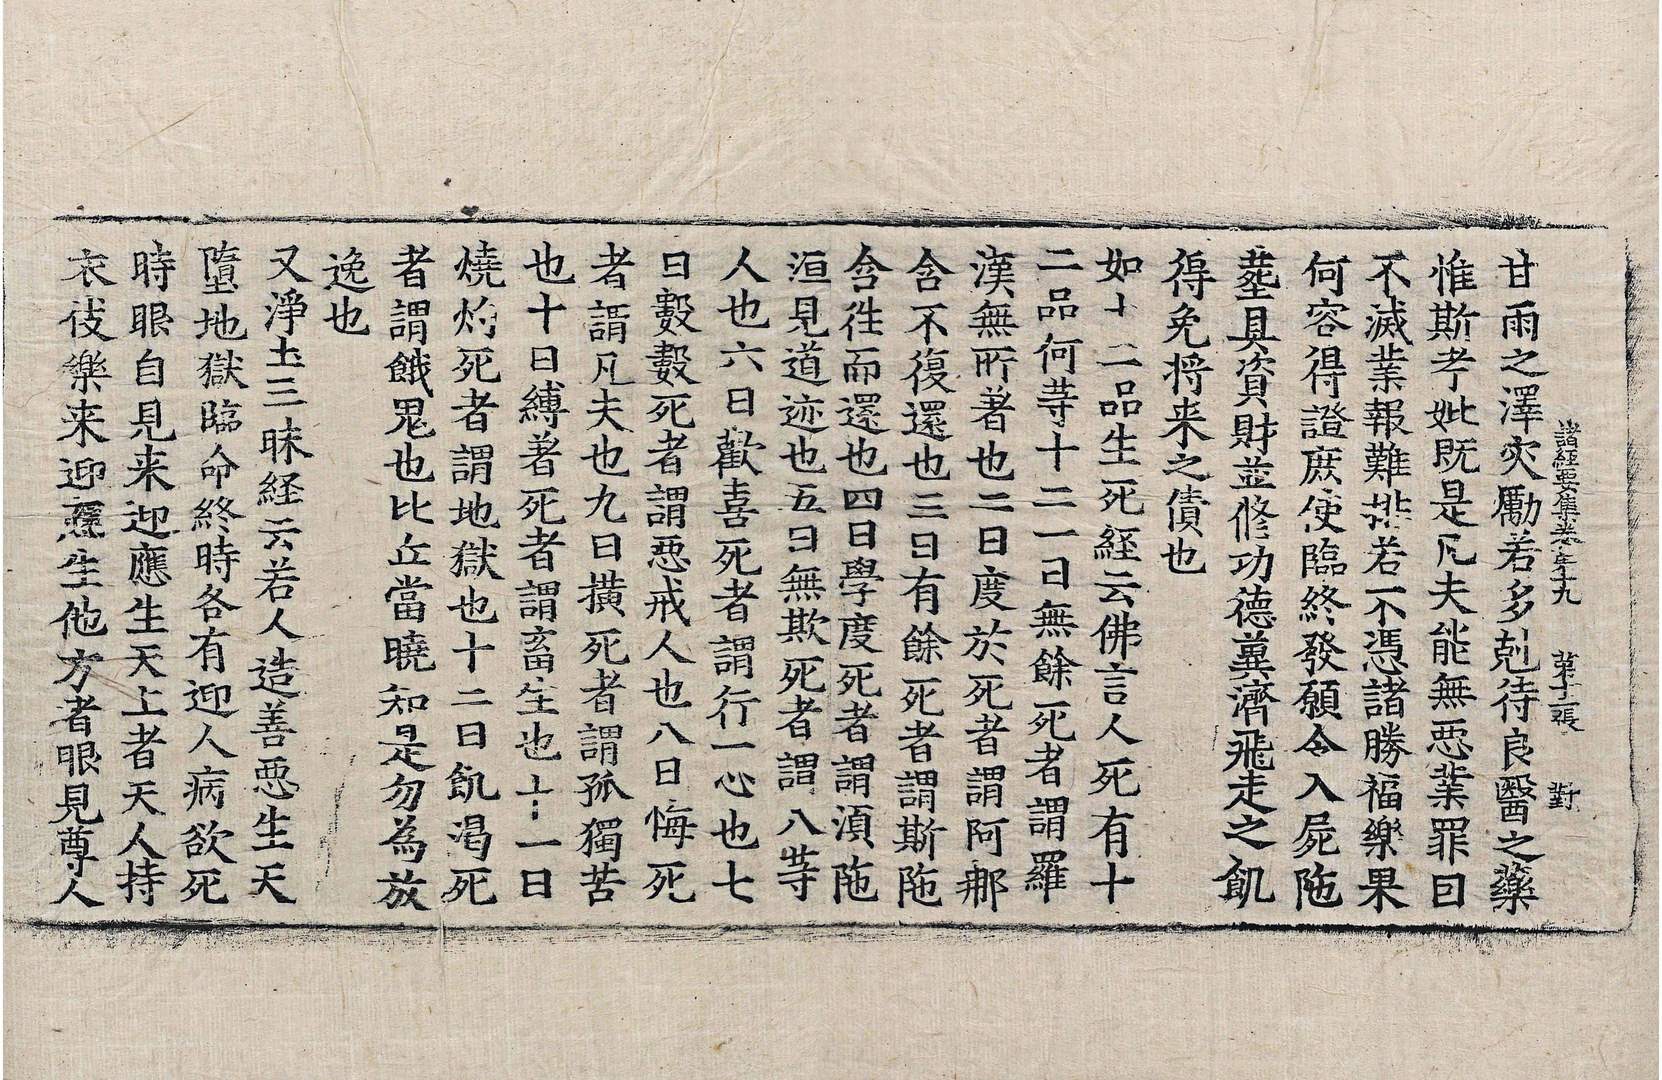 諸経要集卷第十九 第十二張 對
甘雨之澤灾勵若多剋待良醫之藥
惟斯考妣既是凡夫能無惡業罪曰
不滅業報難排若不憑諸勝福樂果
何容得證庶使臨終發願令入屍陁
塟具資財並修功德兾濟飛走之飢
得免将来之債也
如十二品生死経云佛言人死有十
二品何等十二一曰無餘死者謂羅
漢無所著也二曰度於死者謂阿那
含不復還也三曰有餘死者謂斯陁
含徃而還也四曰學度死者謂湏陁
洹見道迹也五曰無欺死者謂八等
人也六曰歡喜死者謂行一心也七
曰數數死者謂惡戒人也八曰悔死
者謂凡夫也九曰撗死者謂孤獨苦
也十曰縛著死者謂畜生也十一曰
燒灼死者謂地獄也十二曰飢渴死
者謂餓鬼也比丘當曉知是勿為放
逸也
又淨土三昧経云若人造善惡生天
墮地獄臨命終時各有迎人病欲死
時眼自見来迎應生天上者天人持
衣伎樂来迎應生他方者眼見尊人